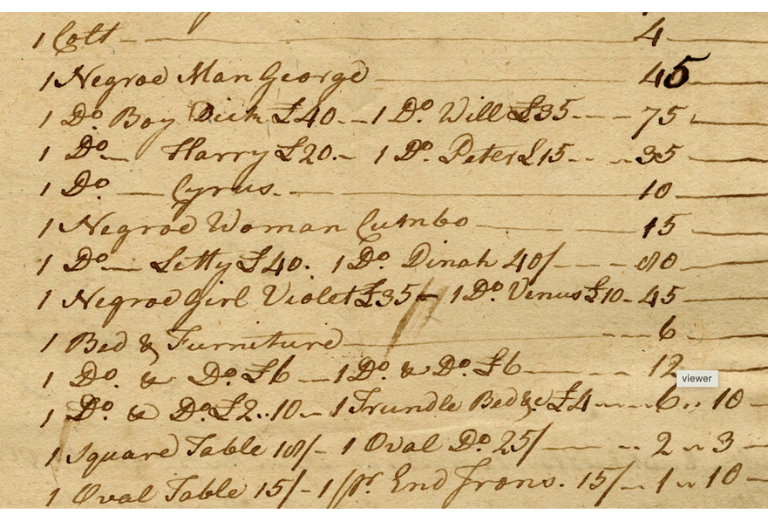 1 Colt — 4
1 Negroe Man George — 45
1 Do. Boy Dick £40.--1 Do. Will £35--- 75
1 Do — Harry £20.- 1 Do. Peter £15-- 35
1 Do — Cyrus. — 10
1 Negroe Woman Cumbo — 15
1 Do — Letty £40. 1 Do. Dinah 40/ --- 80
1 Negroe Girl Violet £35/- 1 Do. Venus £10 - 45
1 Bed & Furniture — 6
1 Do. & Do. £6 — 1 Do. & Do. £6 — 12
viewer
1 Do. & Do. £2..10 - 1 Trundle Bed &c £4 --- 6 .. 10
1 Square Table 18/- 1 Oval Do. 25/ — 2 .. 3
1 Oval Table 15/- 1 pr. End Irons. 15/-- 1 .. 10